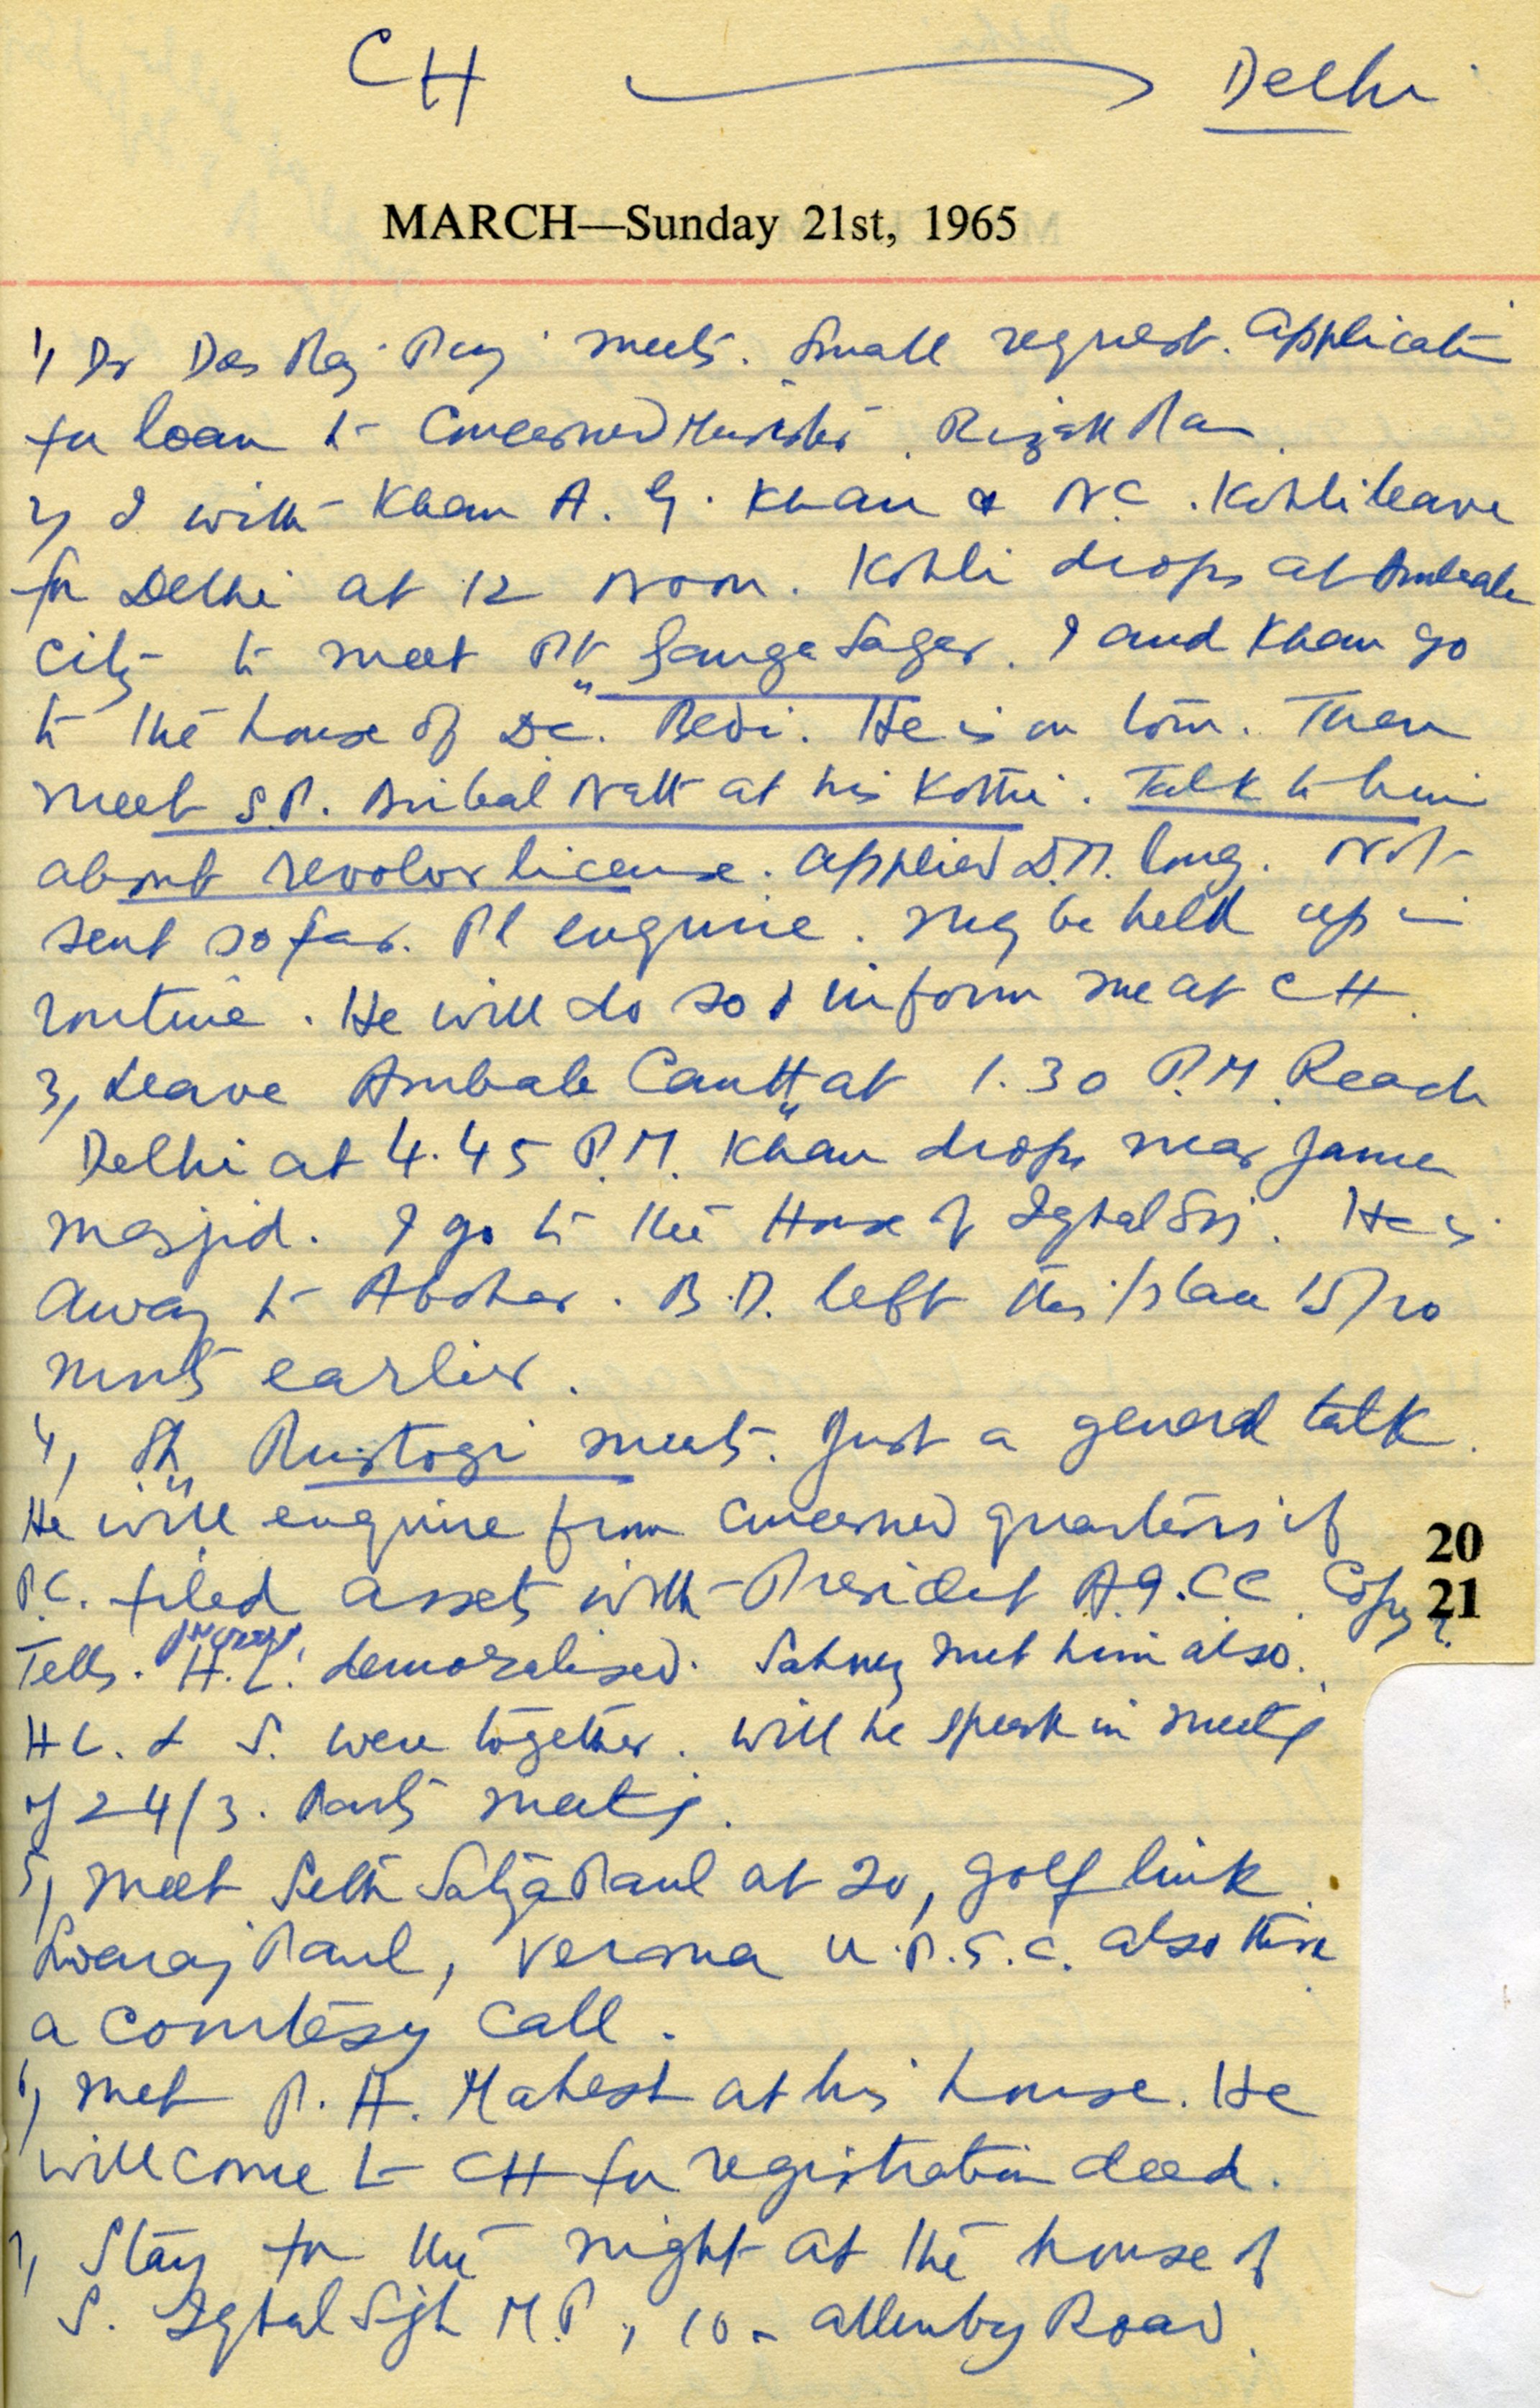 CH → Delhi
MARCH—Sunday 21st, 1965
1, Dr Des Raj meets. Small request. Application
for loan to Concerned Minister. Rizak Ram
2, I with Khan A. G. Khan & N.C. Kohli leave
for Delhi at 12 noon. Kohli drops at Ambala
City to meet Pt Ganga Sagar. I and Khan go
to the house of D.C. Bedi. He is on tour. Then
meet S.P. Nath at his Kothi. Talk to him
about revolver license. applied D.M. long. Not
sent so far. Pl enquire. may be held up in
routine. He will do so & inform me at CH.
3, Leave Ambala Cantt at 1.30 P.M. Reach
Delhi at 4.45 P.M. Khan drops near Jama
masjid. I go to the House of Iqbal Singh. He is
away to Abohar. B.D. left this place 15/20
mnts earlier.
4, Sh Rustogi meets. Just a general talk.
He will enquire from concerned quarters if
P.C. filed assets with President A.I.CC. Copy?
Tells. H.L. demoralised. Sahney met him also.
HL. & S. were together. Will he speak in meeting
of 24/3. Party meeting.
5, meet Seth Satya Paul at 20, golf link.
Swaraj Paul, Verma U.P.S.C. also there
a courtesy call.
6, met P. H. Mahesh at his house. He
will come to CH for registration deed.
7, Stay for the night at the house of
S. Iqbal Singh M.P, 10 - allenby Road.
20
21